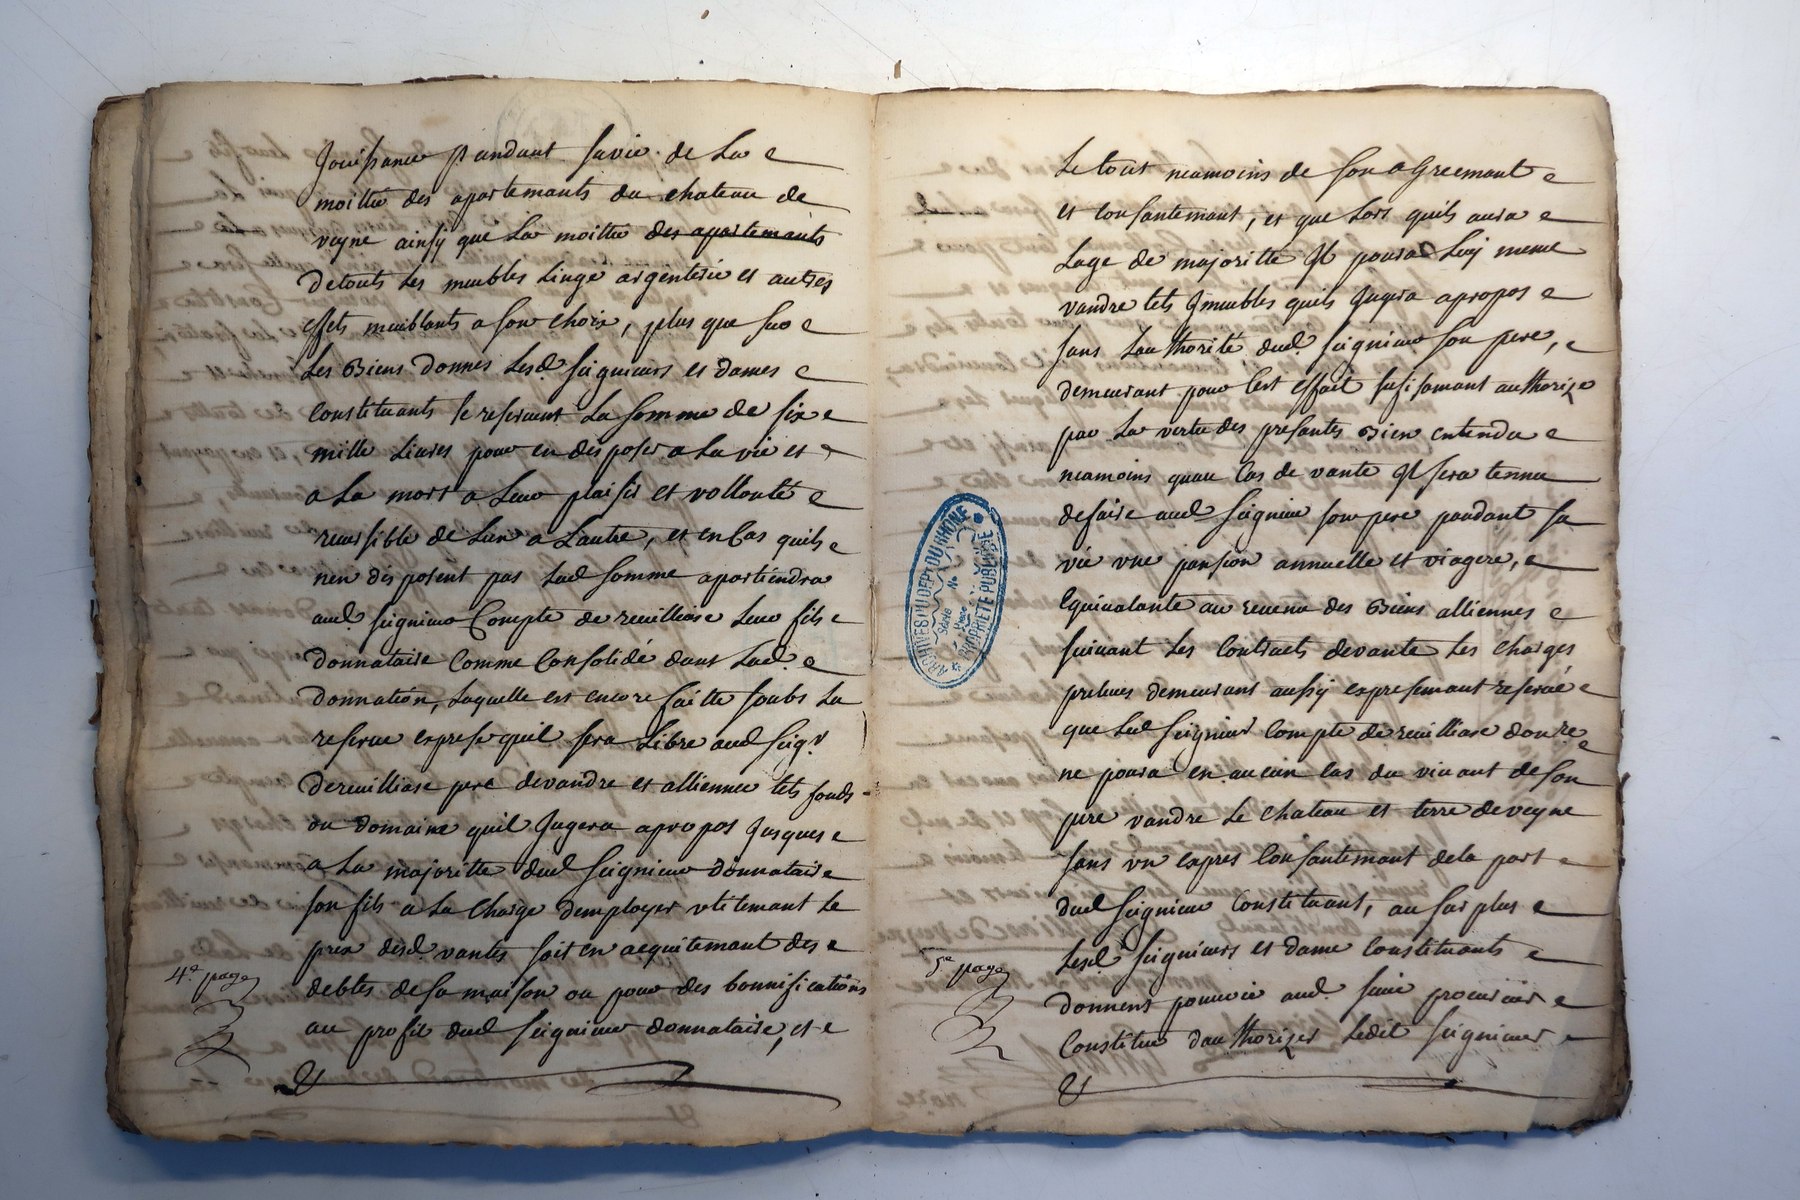 Jouissance pandant sa vie de la
moittie des apartemants du chateau de
veyne ainsy que la moittie des apartemants
de touts les meubles linge argenterie et autres
effets meublants a son choix, plus que sur
les biens donnes lesd. seigneurs et dames
constituants se reservent la somme de six
mille livres pour en disposer a la vie et
a la mort a leur plaisir et vollonte
reversible de lun a lautre, et en cas quils
nen disposent pas lad somme apartiendra
aud. seigneur Compte de reuilliase leur fils
donnataire comme consolidé dans lad.
donnation, laquelle est encore faitte soubs la
reserve expresse quil sera libre aud seigr
de reuilliase pere de vandre et allienner tels fonds
ou domaine quil Jugera apropos Jusques
a la majoritte dud seigneur donnataire
son fils a la charge demployer utilemant le
prix desd. vantes soit en acquitemant des
debtes de sa maison ou pour des bonnifications
au profit dud seigneur donnataire, et
4e. page
Le tout neamoins de son agreemant
et consantemant, et que lors quils aura
lage de majoritte Il poura luy meme
vandre tels Jmeubles quils Jugera apropos
sans lauthorité dud. seigneur son pere,
demeurant pour cest effait sufisamant authorize
par la vertu des presantes bien entendu
neamoins quau cas de vante Il sera tennu
de faire aud seigneur son pere pandant sa
vie une pansion annuelle et viagere,
equivalante au revenu des biens alliennes
suivant les contracts de vante les charges
prelevees demeurant aussy expressemant reservé
que led seigneur Compte de reuilliase donre
ne poura en aucun cas du vivant de son
pere vandre le chateau et terre de veyne
sans un expres consantemant de la part
dud seigneur constituant, au surplus
lesd. seigneurs et dame constituants
donnent pouvoir aud. sieur procureur
constitue dauthorizer ledit seigneur
5e page
ARCHIVES DU DEPT DU RHONE
Série No
Liasse
PROPRIETE PUBLIQUE